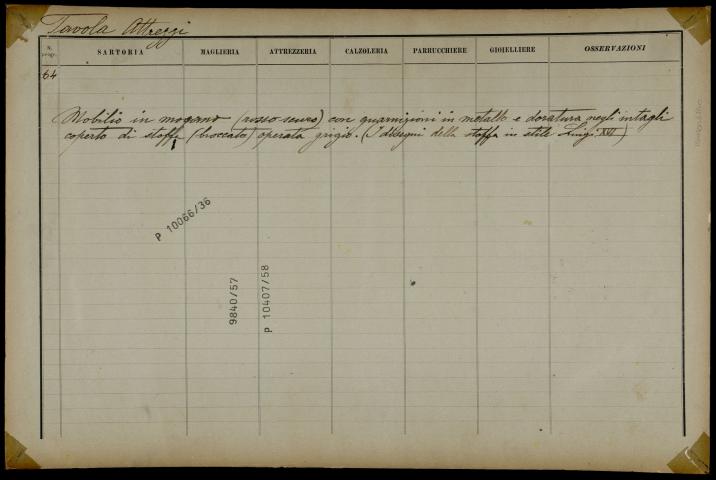 Tavola Attrezzi
N. progr.
SARTORIA
MAGLIERIA
ATTREZZERIA
CALZOLERIA
PARRUCCHIERE
GIOIELLIERE
OSSERVAZIONI
64
Mobilio in mogano (rosso scuro) con guarnizioni in metallo e doratura negli intagli
coperto di stoffa (broccato) operata grigio. (I disegni della stoffa in stile Luigi XVI)
P 10066/36
9840/57
P 10407/58